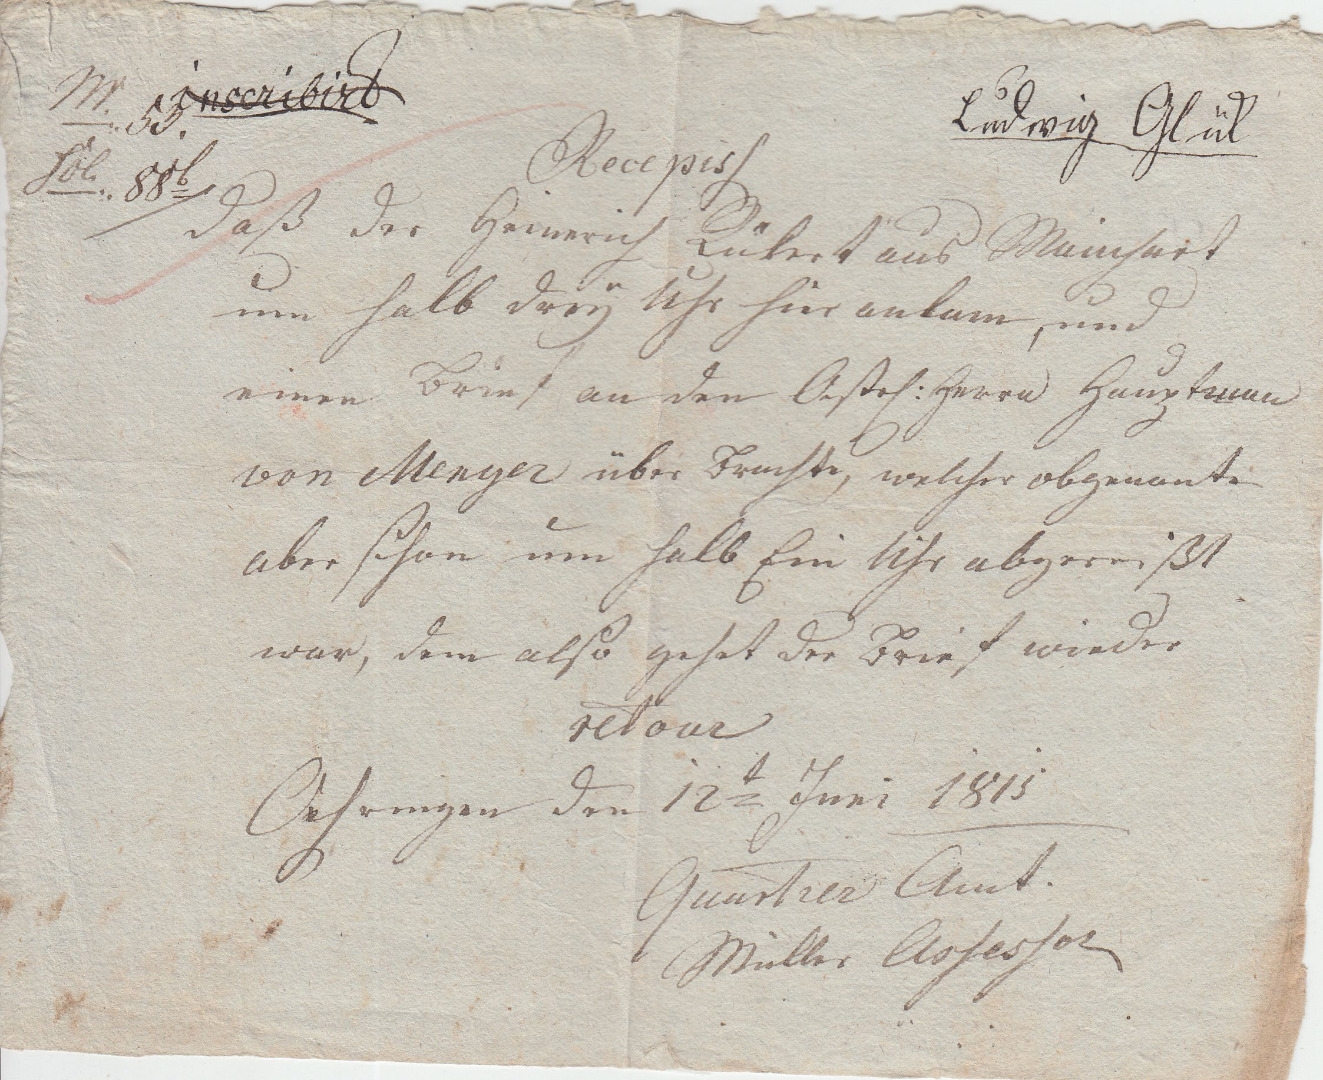 Nr. 55. inscribirt
Fol. 88b
Ludwig Glük
Recepiss
daß der Heinerich Rükert aus Mainhart
um halb drey Uhr hier ankam, und
einen Brief an den Herrn Hauptman
von Menger über brachte, welcher obgenante
aber schon um halb Ein Uhr abgereißt
war, dem also gehet der Brief wieder
retour
Oehringen den 12t Juni 1815
Quartier Amt.
Müller Assessor